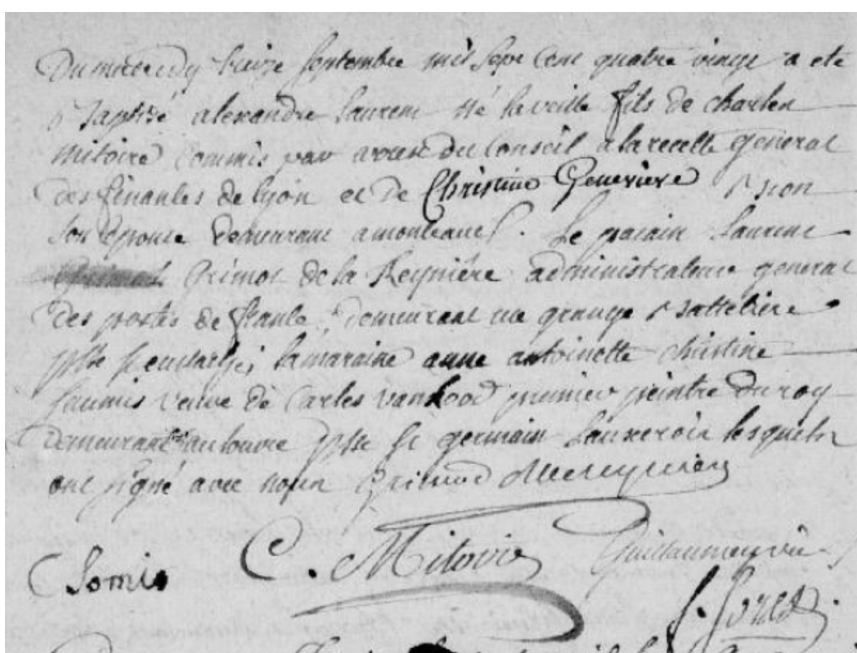 Du mercredy treize septembre mil sept cent quatre vingt a eté
Baptisé alexandre laurent né la veille fils de charles
mitoire commis par arrest du Conseil a la recette general
des finances de lyon et de Christine Genevieve Bron
son Epouse demeurant a montceaux. Le parain laurent
Grimod de la Reyniere administrateur general
des postes de france, demeurant rue grange Batteliere
psse St eustache, la maraine anne antoinette christine
saumis veuve de Carles vanlood premier peintre du roy
demeurante au louvre psse St germain lauxerois lesquels
ont signé avec nous Grimod
Somis C. Mitoire